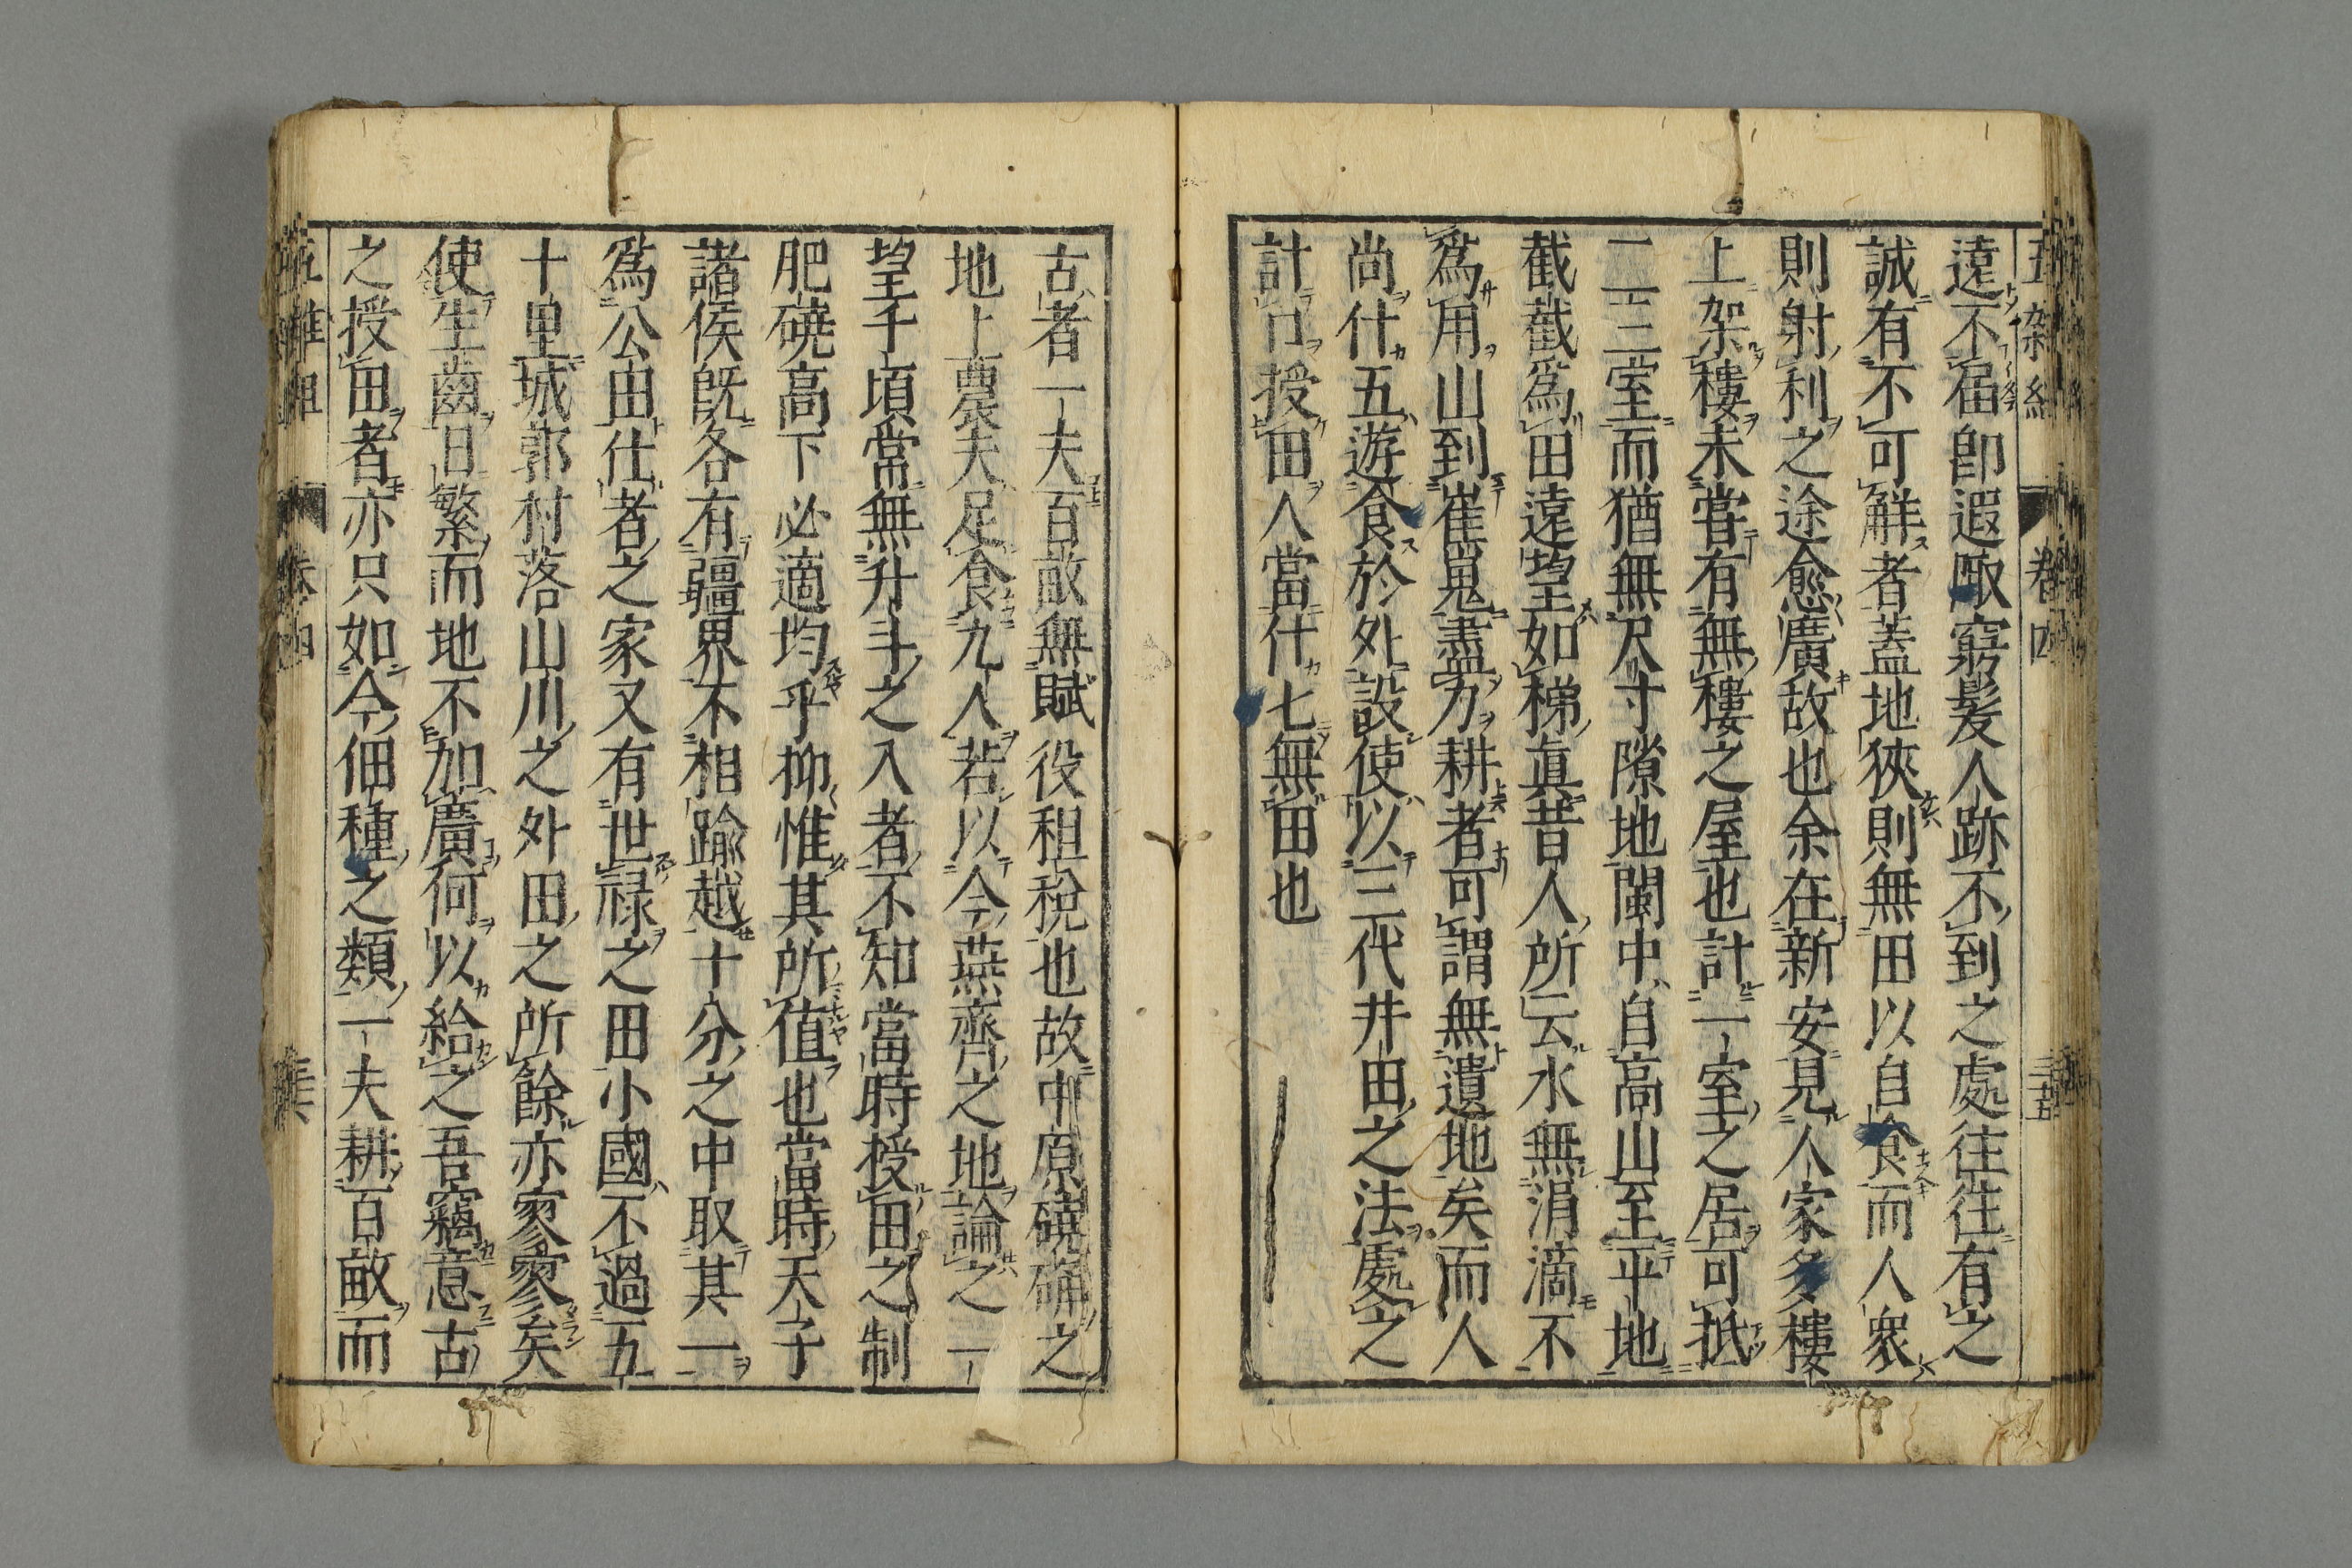 五雜組 卷四 三五
遠不屆卽遐陬窮髮人跡不到之處往往有之
誠有不可解者蓋地狹則無田以自食而人衆
則射利之途愈廣故也余在新安見人家多樓
上架樓未嘗有無樓之屋也計一室之居可抵
二三室而猶無尺寸隙地閩中自高山至平地
截截爲田遠望如梯眞昔人所云水無涓滴不
爲用山到崔嵬盡力耕者可謂無遺地矣而人
尚什五遊食於外設使以三代井田之法處之
計口授田人當什七無田也
古者一夫百畝無賦役租稅也故中原磽确之
地上農夫足食九人若以今燕齊之地論之一
望千頃常無升斗之入者不知當時授田之制
肥磽高下必適均乎抑惟其所値也當時天子
諸侯旣各有疆界不相踰越十分之中取其一
爲公田仕者之家又有世祿之田小國不過五
十里城郭村落山川之外田之所餘亦寥寥矣
使生齒日繁而地不加廣何以給之吾竊意古
之授田者亦只如今佃種之類一夫耕百畝而
五雜組 卷四